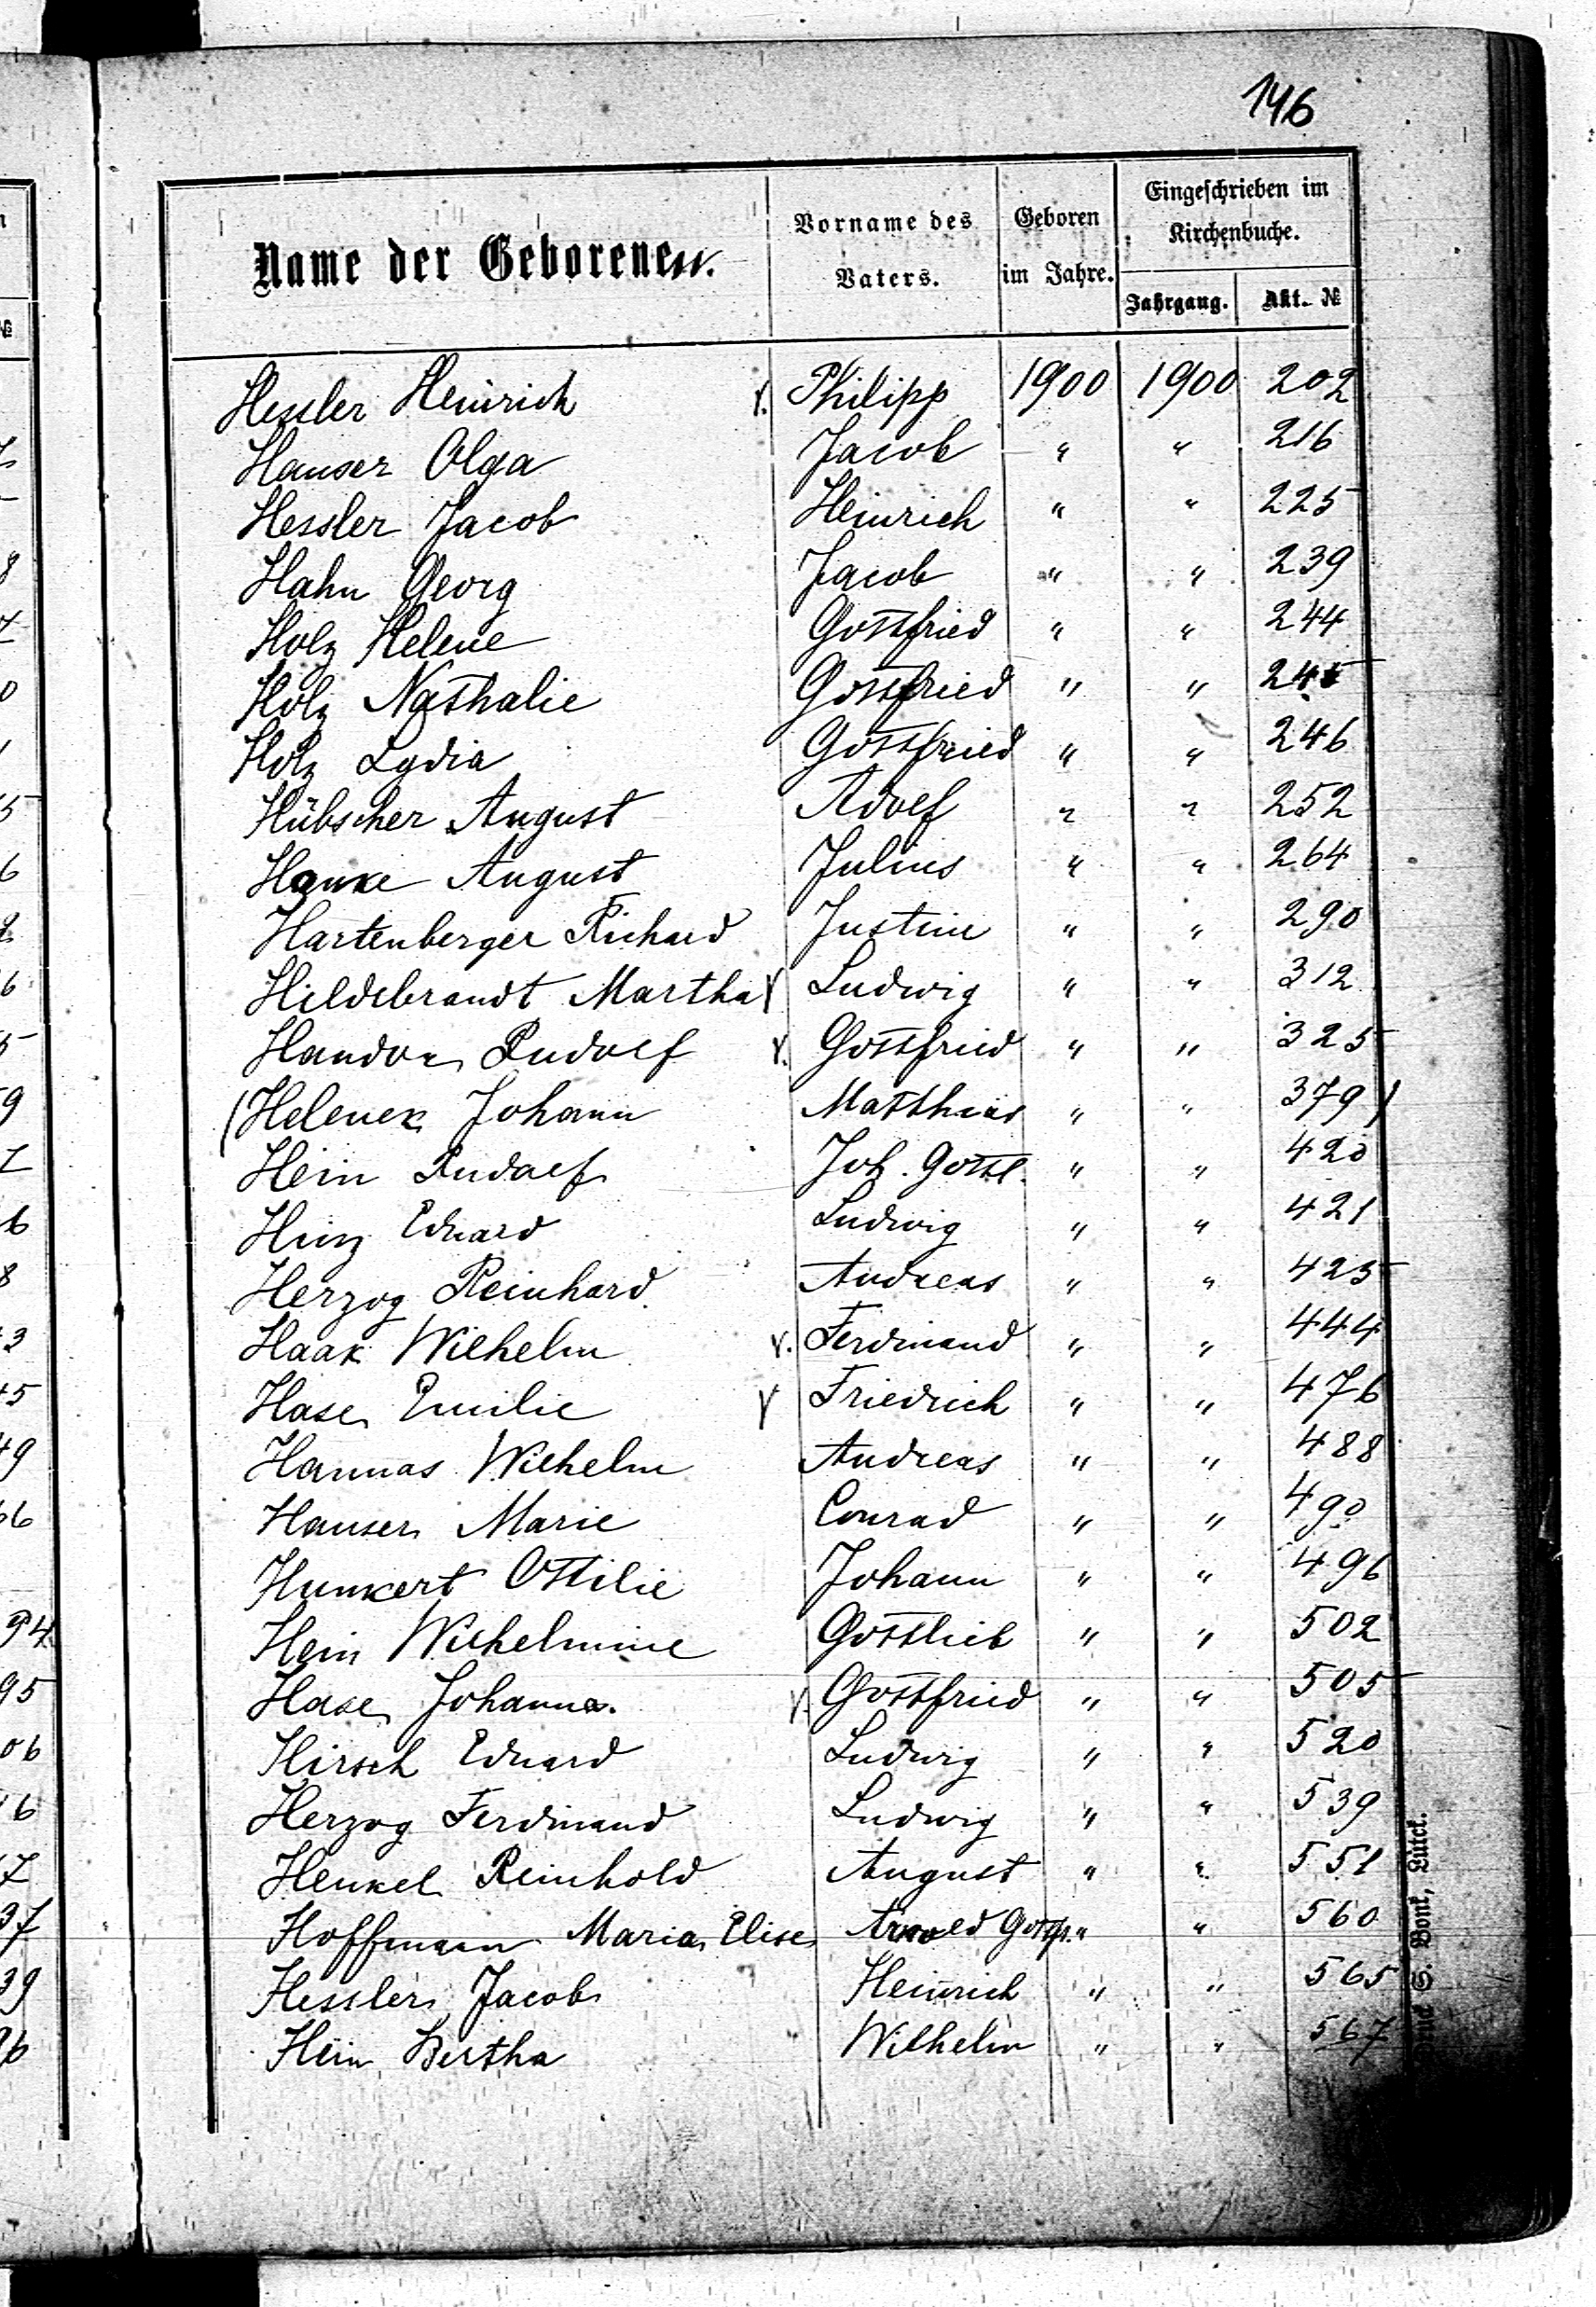 146
Name der Geborenen.
Vorname des Vaters.
Geboren im Jahre.
Eingeschrieben im Kirchenbuche.
Jahrgang.
Akt. №
Hessler Heinrich v. Philipp 1900 1900 202
Hauser Olga Jacob " " 216
Hessler Jacob Heinrich " " 225
Hahn Georg Jacob " " 239
Holz Helene Gottfried " " 244
Holz Nathalie Gottfried " " 245
Holz Lydia Gottfried " " 246
Hübscher August Adolf " " 252
Hanke August Julius " " 264
Hartenberger Richard Justine " " 290
Hildebrandt Martha v Ludwig " " 312
Handor Rudolf v. Gottfried " " 325
(Helenek Johann Matthias " " 379)
Hein Rudolf Joh. Gottl. " " 420
Hinz Eduard Ludwig " " 421
Herzog Reinhard Andreas " " 425
Haak Wilhelm v. Ferdinand " " 444
Hase Emilie v Friedrich " " 476
Hannas Wilhelm Andreas " " 488
Hauser Marie Conrad " " 490
Hunkert Ottilie Johann " " 496
Hein Wilhelmine Gottlieb " " 502
Hase Johanna. v. Gottfried " " 505
Hirsch Eduard Ludwig " " 520
Herzog Ferdinand Ludwig " " 539
Henkel Reinhold August " " 551
Hoffmann Maria Elise Arnold " " 560
Hessler Jacob Heinrich " " 565
Hein Bertha Wilhelm " " 567
Druck S. Bonk, Lutck.